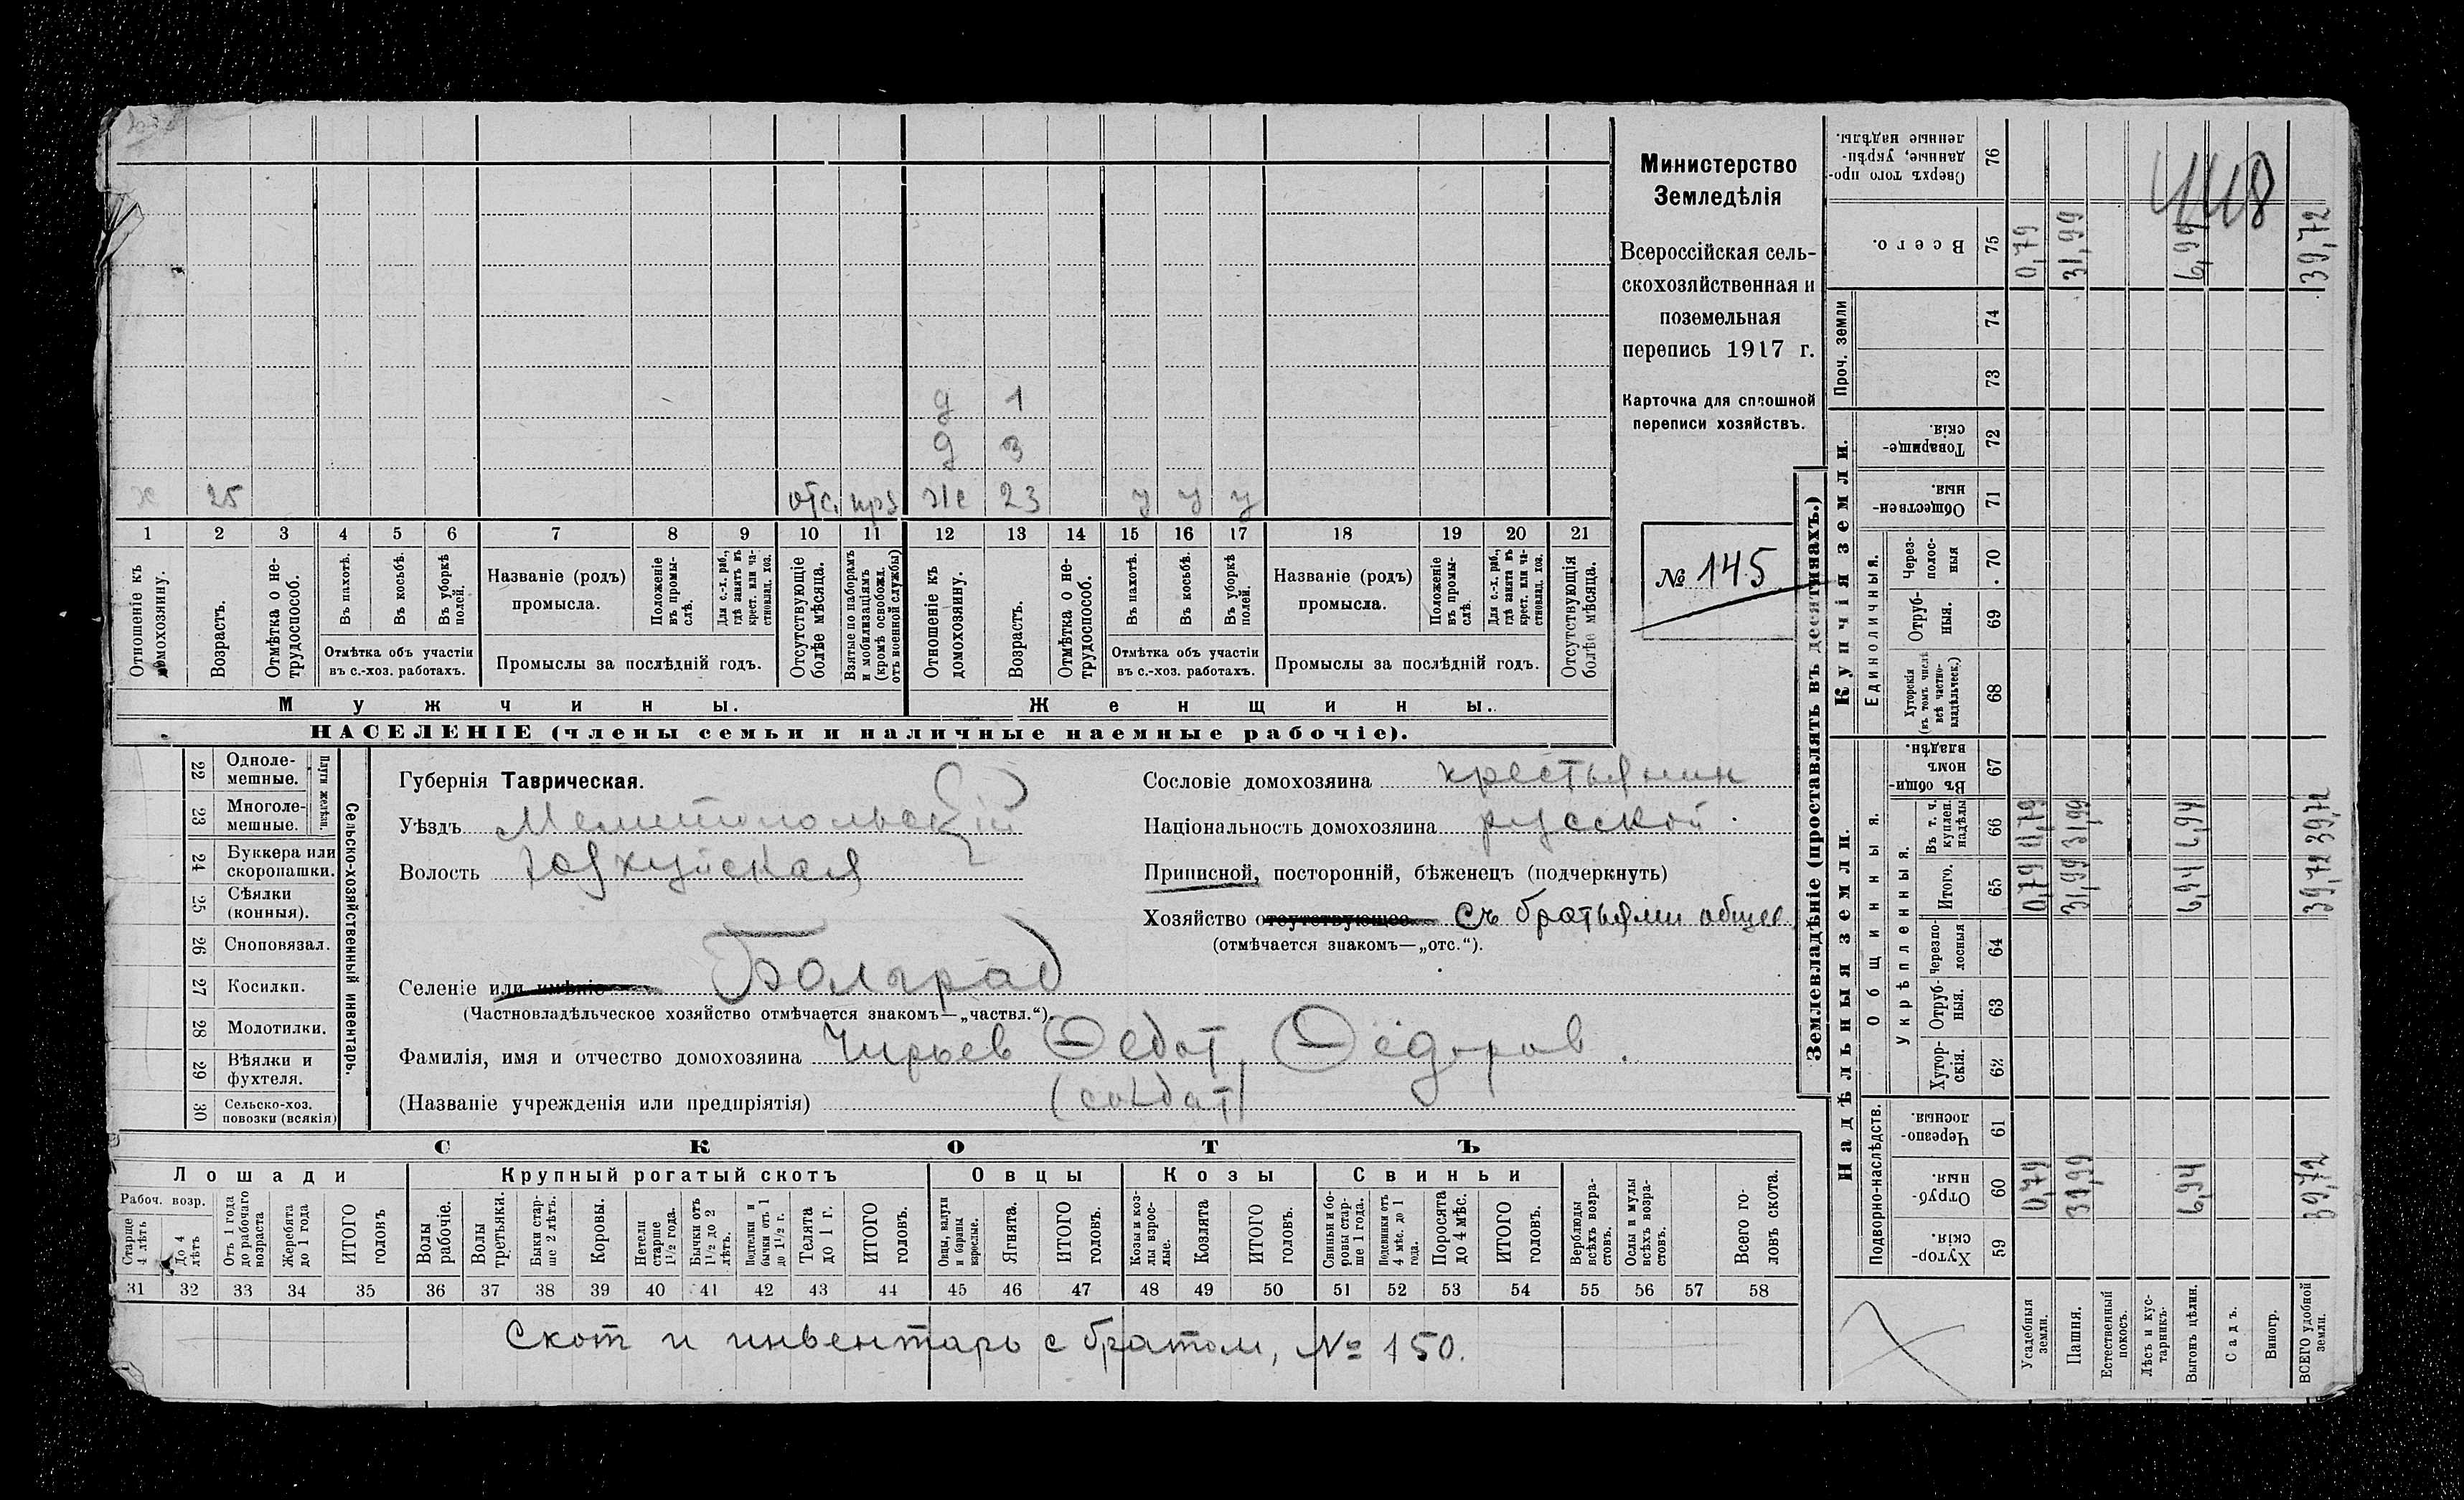 Министерство
Земледѣлія
Всероссійская сель-
скохозяйственная и
поземельная
перепись 1917 г.
Карточка для сплошной
переписи хозяйствъ.
№ 145
448
д 1
д 3
х 25 отс. ж 23 у у у
1 2 3 4 5 6 7 8 9 10 11 12 13 14 15 16 17 18 19 20 21
Отношеніе къ домохозяину.
Возрастъ.
Отмѣтка о не-трудоспособ.
Въ пахотѣ.
Въ косьбѣ.
Въ уборкѣ полей.
Отмѣтка объ участіи въ с.-хоз. работахъ.
Названіе (родъ) промысла.
Положеніе въ промы-слѣ.
Для с.-х. раб., гдѣ занятъ въ крест. или ча-стновлад. хоз.
Промыслы за послѣдній годъ.
Отсутствующіе болѣе мѣсяца.
Взятые по наборамъ и мобилизаціямъ (кромѣ освобожд. отъ военной службы)
Отношеніе къ домохозяину.
Возрастъ.
Отмѣтка о не-трудоспособ.
Въ пахотѣ.
Въ косьбѣ.
Въ уборкѣ полей.
Отмѣтка объ участіи въ с.-хоз. работахъ.
Названіе (родъ) промысла.
Положеніе въ промы-слѣ.
Для с.-х. раб., гдѣ занятъ въ крест. или ча-стновлад. хоз.
Промыслы за послѣдній годъ.
Отсутствующія болѣе мѣсяца.
Мужчины. Женщины.
НАСЕЛЕНІЕ (члены семьи и наличные наемные рабочіе).
22 Одноле-мешные.
23 Многоле-мешные.
Плуги желѣзн.
24 Буккера или скоропашки.
25 Сѣялки (конныя).
26 Сноповязал.
27 Косилки.
28 Молотилки.
29 Вѣялки и фухтеля.
30 Сельско-хоз. повозки (всякія)
Сельско-хозяйственный инвентарь.
Губернія Таврическая.
Уѣздъ Мелитопольскій
Волость
Селеніе или имѣніе Болград
(Частновладѣльческое хозяйство отмѣчается знакомъ—„частвл.“).
Фамилія, имя и отчество домохозяина Чирьев Федот Фёдоров.
(Названіе учрежденія или предпріятія) (солдат)
Сословіе домохозяина крестьянин
Національность домохозяина русской.
Приписной, посторонній, бѣженецъ (подчеркнуть)
Хозяйство отсутствующее съ братьями общее
(отмѣчается знакомъ—„отс.“).
СКОТЪ
Лошади Крупный рогатый скотъ Овцы Козы Свиньи
Рабоч. возр.
Старше 4 лѣтъ
До 4 лѣтъ
Отъ 1 года до рабочаго возраста
Жеребята до 1 года
ИТОГО головъ
Волы рабочіе.
Волы третьяки.
Быки стар-ше 2 лѣтъ.
Коровы.
Нетели старше 1½ года.
Бычки отъ 1½ до 2 лѣтъ.
Подтелки и бычки отъ 1 до 1½ г.
Телята до 1 г.
ИТОГО головъ.
Овцы, валухи и бараны взрослые.
Ягнята.
ИТОГО головъ.
Козы и коз-лы взрос-лые.
Козлята
ИТОГО головъ.
Свиньи и бо-ровы стар-ше 1 года.
Подсвинки отъ 4 мѣс. до 1 года.
Поросята до 4 мѣс.
ИТОГО головъ.
Верблюды всѣхъ возра-стовъ.
Ослы и мулы всѣхъ возра-стовъ.
Всего го-ловъ скота.
31 32 33 34 35 36 37 38 39 40 41 42 43 44 45 46 47 48 49 50 51 52 53 54 55 56 57 58
Скот и инвентарь с братом, № 150.
Землевладѣніе (проставлять въ десятинахъ.)
Надѣльныя земли.
Купчія земли.
Проч. земли
Подворно-наслѣдств.
Общинныя.
Укрѣпленныя.
Единоличныя.
Хутор-скія. 59
Отруб-ныя. 60
Черезпо-лосныя. 61
Хутор-скія. 62
Отруб-ныя. 63
Черезпо-лосныя 64
Итого. 65
Въ т. ч. куплен. надѣлы 66
Въ общи-номъ владѣн. 67
Хуторскія (въ томъ числѣ всѣ частно-владѣльческ.) 68
Отруб-ныя. 69
Через-полос-ныя 70
Обществен-ныя. 71
Товарище-скія. 72
73
74
Всего. 75
Сверхъ того про-данные, укрѣп-ленные надѣлы. 76
Усадебныя земли. 0,79 0,79 0,79 0,79
Пашня. 31,99 31,99 31,99 31,99
Естественный покосъ.
Лѣсъ и кус-тарникъ.
Выгонъ цѣлин. 6,94 6,94 6,94 6,94
Садъ.
Виногр.
ВСЕГО удобной земли. 39,72 39,72 39,72 39,72